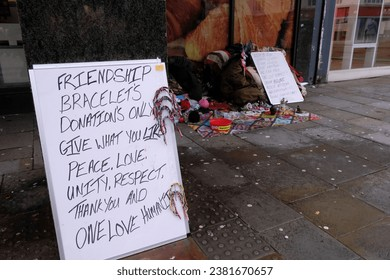 FRIENDSHIP
BRACELETS
DONATIONS ONLY
GIVE WHAT YOU LIKE
PEACE. LOVE.
UNITY. RESPECT.
THANKYOU AND
ONE LOVE HUMANS
shutterstock.com · 2381670657